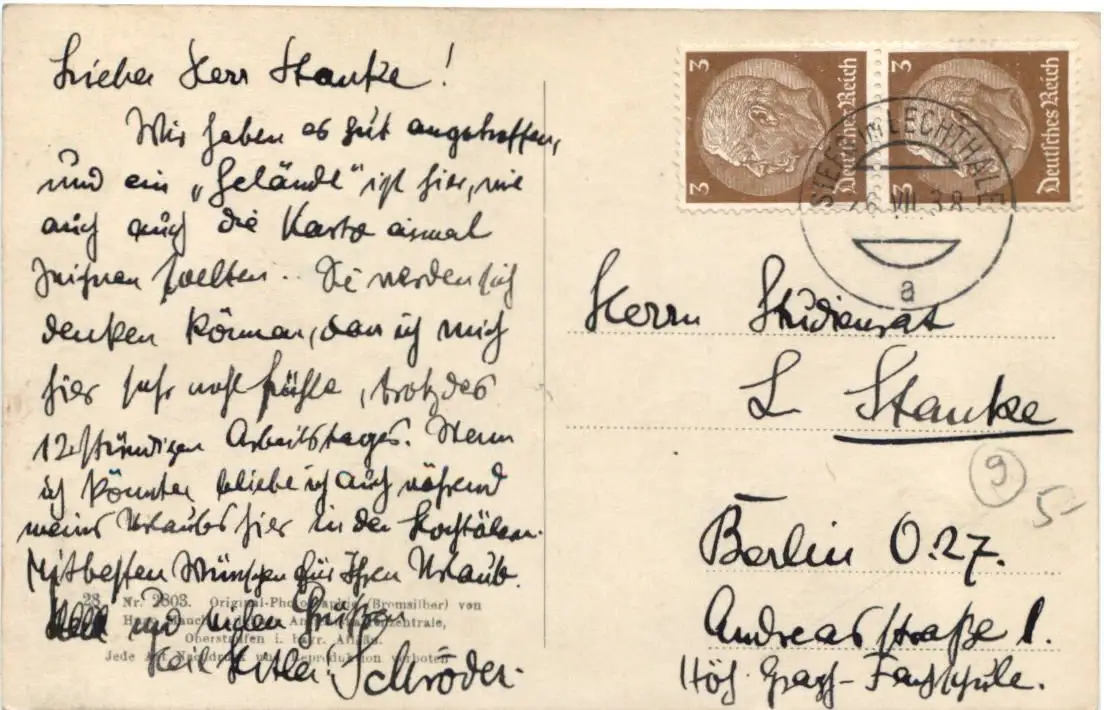 Lieber Herr Stanke!
Wir haben es gut angetroffen,
und ein „Gelände“ ist hier, wie
auch auch die Karte einmal
zeichnen sollten.. Sie werden sich
denken können, dass ich mich
hier sehr wohl fühle, trotz des
12stündigen Arbeitstages. Wenn
ich könnte, bliebe ich auch während
meines Urlaubs hier in den Hochtälern.
Mit besten Wünschen für Ihren Urlaub
und vielen Grüßen
Heil Hitler! Schröder.
23. Nr. 2803. Original-Photographie (Bromsilber) von
Oberstaufen i. bayr. Allgäu.
Jede Art Nachdruck und Reproduktion verboten
3 Deutsches Reich 3
3 Deutsches Reich 3
STEEG IM LECHTHALE
VII. 38
a
Herrn Studienrat
L Stanke
9
5-
Berlin O.27.
Andreasstraße 1.
Höh. Graph-Fachschule.